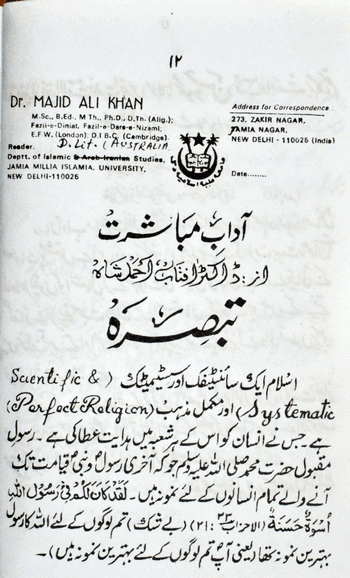 ۱۲
Dr. MAJID ALI KHAN
M.Sc., B.Ed., M Th., Ph.D., D.Th. (Alig.);
Fazil-e-Diniat, Fazil-e-Dars-e-Nizami;
E.F.W. (London); D.I B.C. (Cambridge).
D. Lit. (AUSTRALIA
Reader,
Deptt. of Islamic & Arab-Iranian Studies,
JAMIA MILLIA ISLAMIA, UNIVERSITY,
NEW DELHI-110025
Address for Correspondence
273, ZAKIR NAGAR,
JAMIA NAGAR,
NEW DELHI - 110025 (India)
Date........
آدابِ مباشرت
از: ڈاکٹر آفتاب احمد شاہ
تبصرہ
اسلام ایک سائنٹیفک اور سسٹیمیٹک ( Scientific &
Systematic) اور مکمل مذہب (Perfect Religion)
ہے۔ جس نے انسان کو اس کے ہر شعبہ میں ہدایت عطا کی ہے۔ رسول
مقبول حضرت محمد صلی اللہ علیہ وسلم جو کہ آخری رسول و نبی قیامت تک
آنے والے تمام انسانوں کے لئے نمونہ ہیں۔ لَقَدْ كَانَ لَكُمْ فِيْ رَسُوْلِ اللّٰهِ
اُسْوَةٌ حَسَنَةٌ (الاحزاب ۳۳ : ۲۱) (بے شک) تم لوگوں کے لئے اللہ کا رسول
بہترین نمونہ تھا یعنی آپ تم لوگوں کے لئے بہترین نمونہ ہیں)۔